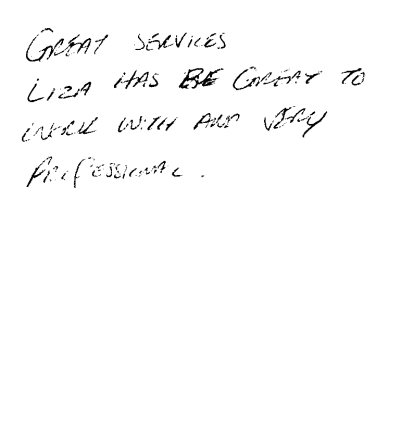 GREAT SERVICES
LIZA HAS BE GREAT TO
WORK WITH AND VERY
PROFESSIONAL.